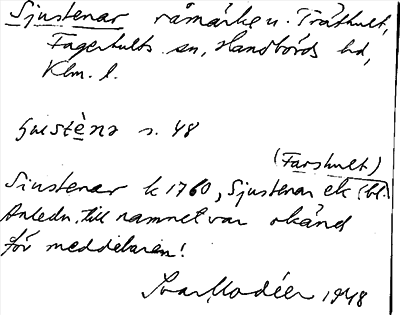 Sjustenar råmärke u. Tråthult,
Fagerhults sn, Handbörds hd,
Klm. l.
s. 48
(Farshult)
Sjustenar k 1760, Sjustenar ek (bl.
Anledn. till namnet var okänd
för meddelaren!
Ivar Modéer 1948